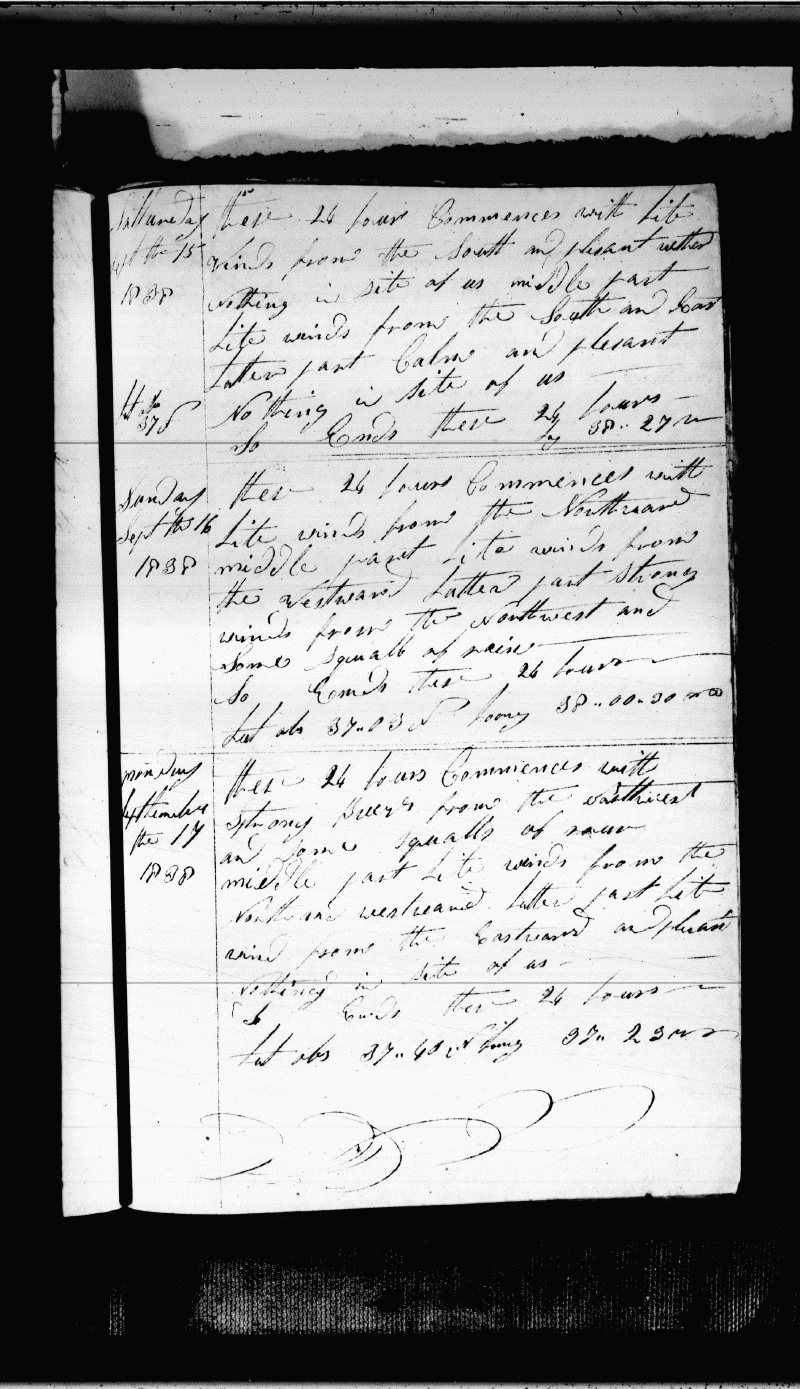 Satturday these 24 hours Commences with Lite
Sept the 15 winds from the South and plesant wether
1838 Nothing in site of us middle part
Lite winds from the South and East
Latter part Calm and plesant
Nothing in site of us
So Ends these 24 hours
37 N 38"27
Sunday these 24 hours Commences with
Sept the 16 Lite winds from the Northward
1838 middle part Lite winds from
the Westward Latter part Strong
winds from the Northwest and
Some Squalls of rain
So Ends these 24 hours
Lat obs 37"03 N Long 38"00"30
monday these 24 hours Commences with
September Strong Breezs from the
the 17 and some squalls of rain
1838 middle part Lite winds from the
North and westward Latter part Lite
wind from the Eastward and plesant
Nothing in site of us
So Ends these 24 hours
Lat obs 37"40 N Long 37"23